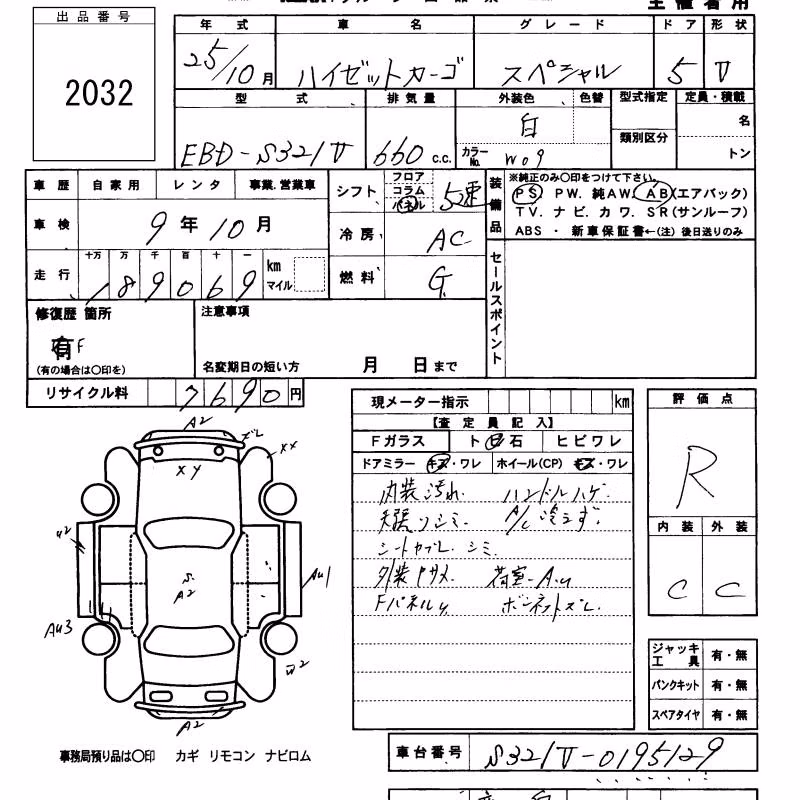 出品番号
2032
年式 車名 グレード ドア 形状
25/10月 ハイゼットカーゴ スペシャル 5 V
型式 排気量 外装色 色替 型式指定 定員・積載
EBD-S321V 660 c.c. 白 カラーNo. W09 類別区分 名 トン
車歴 自家用 レンタ 事業.営業車
シフト フロア コラム パネル 5速
装備品 ※純正のみ〇印をつけて下さい。
PS. PW. 純AW. AB(エアバック)
TV. ナビ. カワ. SR(サンルーフ)
ABS ・ 新車保証書←(注) 後日送りのみ
車検 9年10月
冷房 AC
走行 十万 万 千 百 十 一 189069 km マイル
燃料 G
セールスポイント
修復歴 箇所 注意事項
有 F
(有の場合は〇印を) 名変期日の短い方 月 日まで
リサイクル料 7690円
現メーター指示 km
【査定員記入】
Fガラス ト 石 ヒビワレ
ドアミラー キズ・ワレ ホイール(CP) キズ・ワレ
内装汚れ ハンドルハゲ
天張りシミ A/C冷えず.
シートヤブレ シミ
外装サメ 荷室-Au
Fパネルu ボンネットズレ
評価点
R
内装 外装
C C
ジャッキ工具 有・無
パンクキット 有・無
スペアタイヤ 有・無
A2
ズレ
XX
XY
u2
S
A2
Au1
Au3
W2
A2
事務局預り品は〇印 カギ リモコン ナビロム
車台番号 S321V-0195129